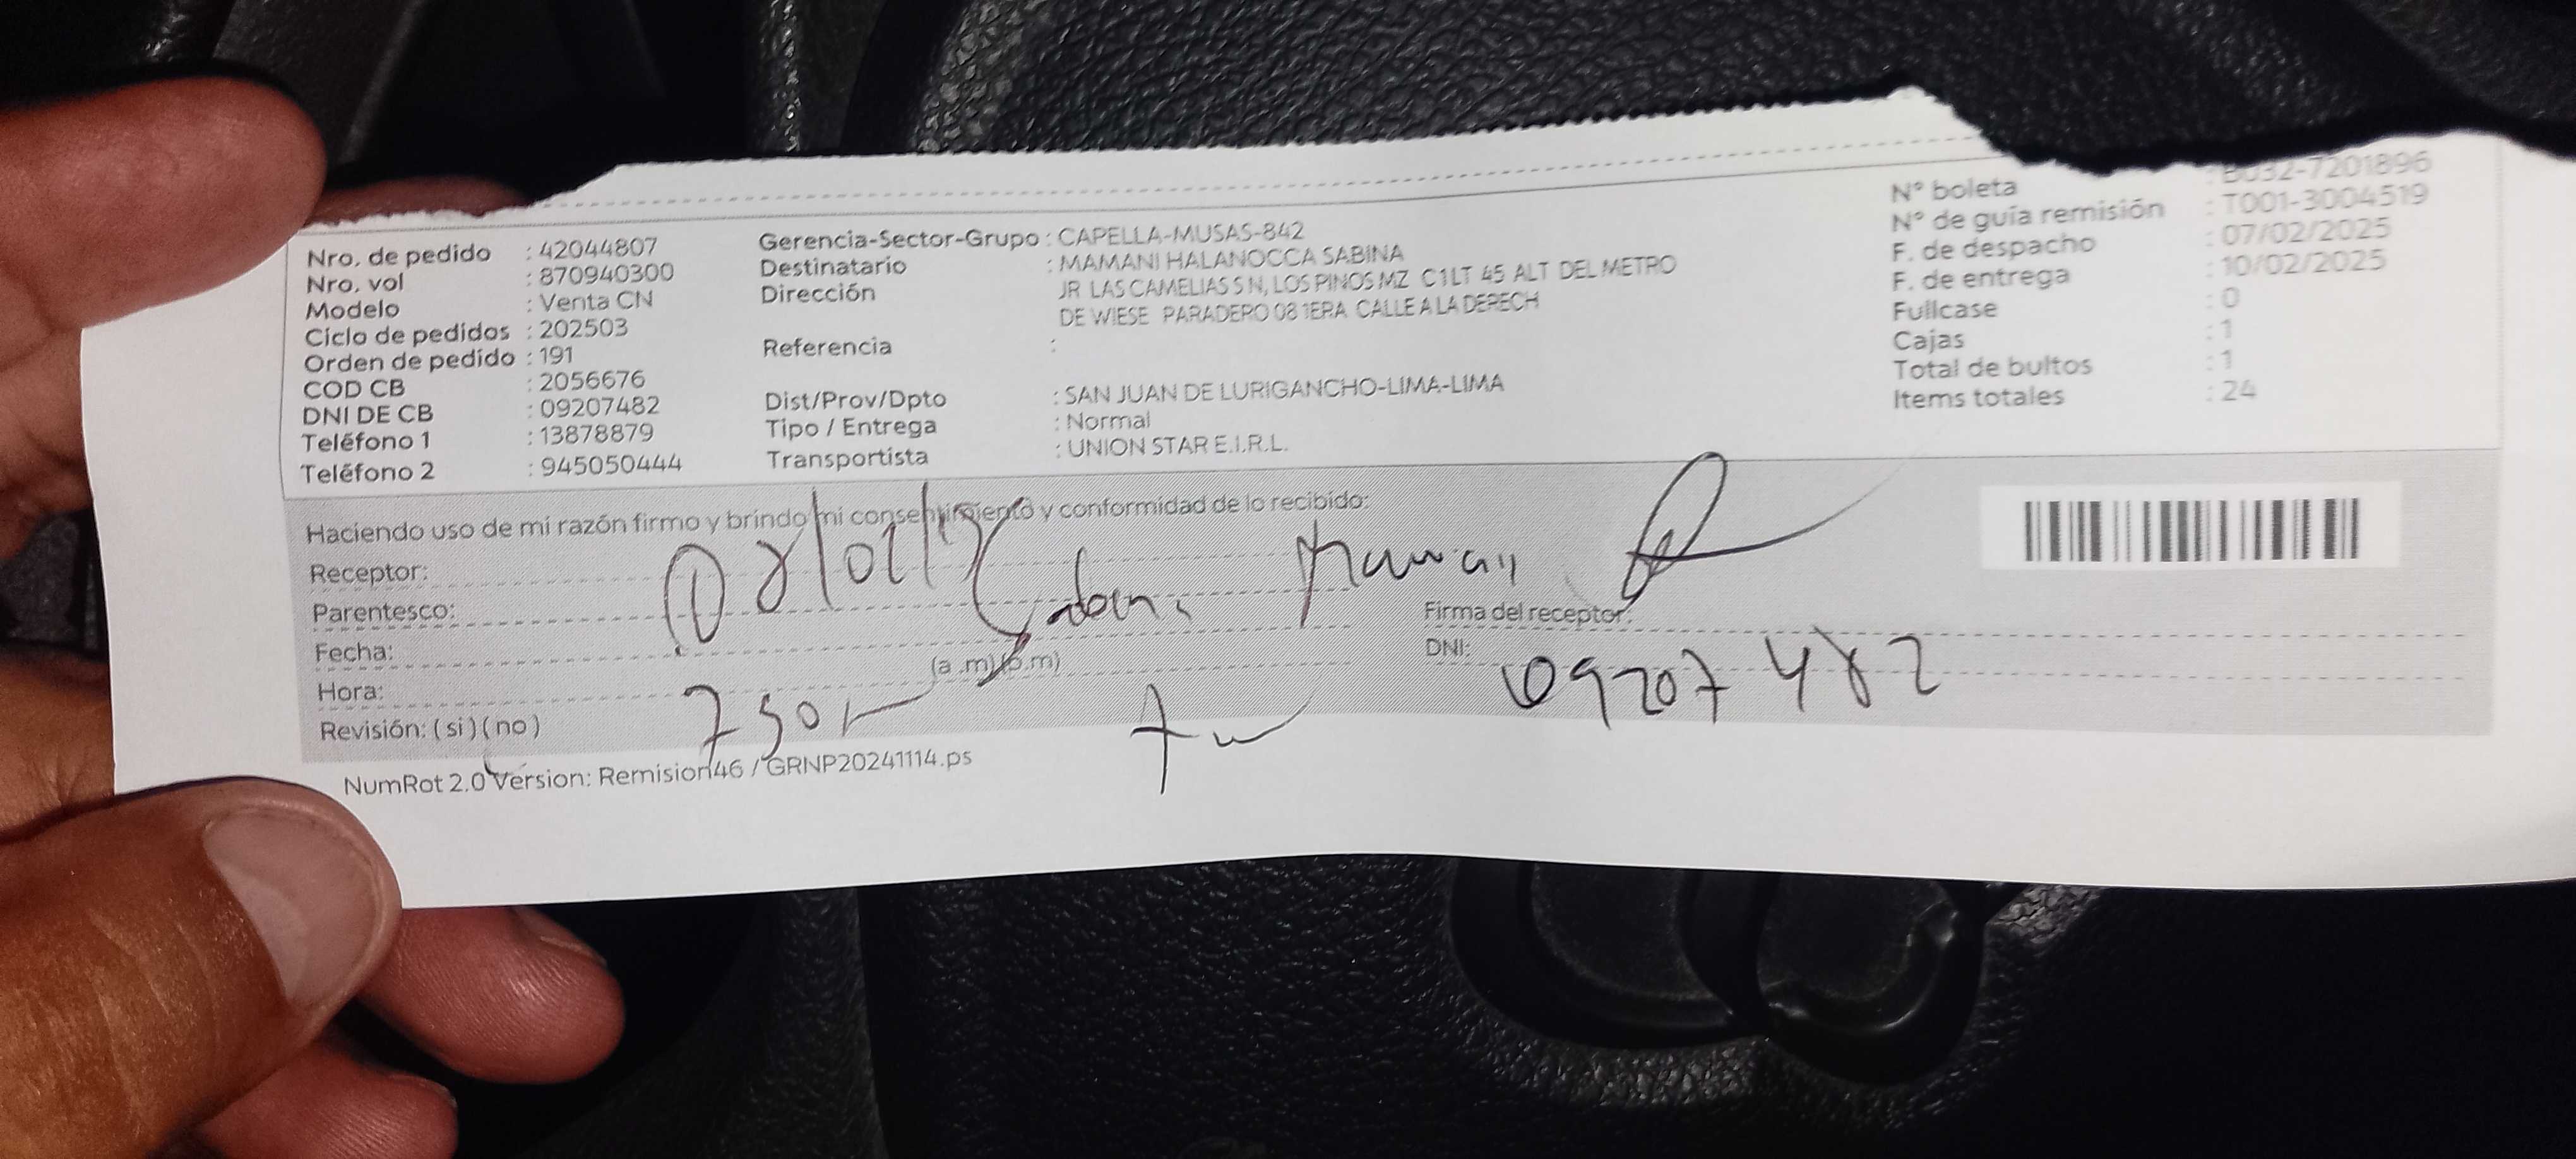 Nro. de pedido : 42044807
Nro. vol : 870940300
Modelo : Venta CN
Ciclo de pedidos : 202503
Orden de pedido : 191
COD CB : 2056676
DNI DE CB : 09207482
Teléfono 1 : 13878879
Teléfono 2 : 945050444
Gerencia-Sector-Grupo : CAPELLA-MUSAS-842
Destinatario : MAMANI HALANOCCA SABINA
Dirección JR LAS CAMELIAS S N, LOS PINOS MZ C1 LT 45 ALT DEL METRO
DE WIESE PARADERO 08 1ERA CALLE A LA DERECH
Referencia :
Dist/Prov/Dpto : SAN JUAN DE LURIGANCHO-LIMA-LIMA
Tipo / Entrega : Normal
Transportista : UNION STAR E.I.R.L.
N° boleta : B032-7201896
N° de guía remisión : T001-3004519
F. de despacho : 07/02/2025
F. de entrega : 10/02/2025
Fullcase : 0
Cajas : 1
Total de bultos : 1
Items totales : 24
Haciendo uso de mi razón firmo y brindo mi consentimiento y conformidad de lo recibido:
Receptor:
Parentesco:
Fecha:
Hora: (a.m)(p.m)
Revisión: (si) (no)
Firma del receptor:
DNI: 09207482
NumRot 2.0 Version: Remision46 / GRNP20241114.ps